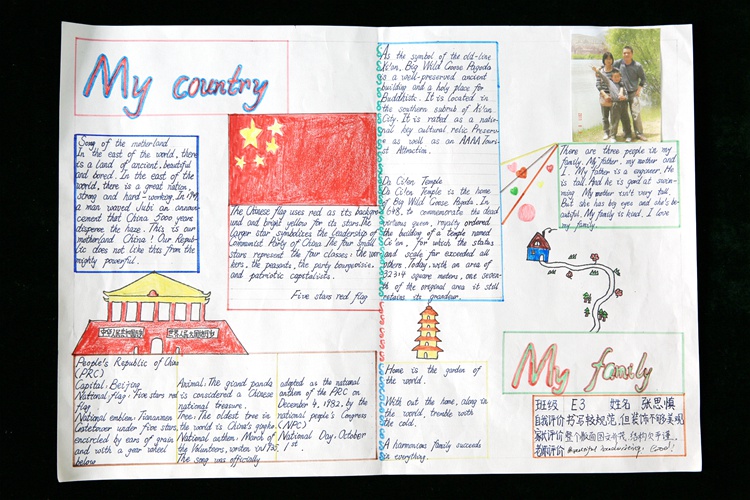 My country
Song of the motherland
In the east of the world, there
is a land of ancient, beautiful
and bored. In the east of the
world, there is a great nation,
strong and hard-working. In 1949,
a man waved Jubi an announ-
cement that China 5000 years
disperse the haze. This is our
motherland China! Our Repub-
lic does not like this from the
mighty powerful.
The Chinese flag uses red as its backgro-
und and bright yellow for its stars. The
larger star symbolizes the leadership of
Communist Party of China. The four small
stars represent the four classes: the wor-
kers, the peasants, the party bourgeoisie,
and patriotic capitalists.
Five stars red flag
中华人民共和国万岁
世界人民大团结万岁
People's Republic of China
(PRC)
Capital: Beijing
National flag: Five stars red
flag
National emblem: Tiananmen
Gatetower under five stars,
encircled by ears of grain
and with a gear wheel
below
Animal: The giand panda
is considered a Chinese
national treasure.
Tree: The oldest tree in
the world is China's gingko.
National anthem: March of
the Volunteers, writen in 1935.
The song was officially
adopted as the national
anthem of the PRC on
December 4, 1982, by the
national people's Congress
(NPC)
National Day: October
1st.
As the symbol of the old-line
Xi'an, Big Wild Goose Pagoda
is a well-preserved ancient
building and a holy place for
Buddhists. It is located in
the southern suburb of Xi'an
City. It is rated as a natio-
nal key cultural relic Preserv-
e as well as an AAAA Touri-
st Attraction.
Da Ci'en Temple
Da Ci'en Temple is the home
of Big Wild Goose Pagoda. In
648, to commemorate the dead
virtuous queen, royalty ordered
the building of a temple named
Ci'en, for which the status
and scale far exceeded all
others. Today, with an area of
32314 square meters, one seven-
th of the original area it still
retains its grandeur.
Home is the garden of
the world.
With out the home, along in
the world, tremble with
the cold.
A harmonious family succeeds
in everything.
There are three people in my
family. My father, my mother and
I. My father is a engineer. He
is tall. And he is good at swim-
ming. My mother isn't very tall.
But she has big eyes and she's be-
autiful. My family is kind. I love
my family.
My family
班级 E3 姓名 张思慎
自我评价 书写较规范,但装饰不够美观
家长评价 整个版面图文并茂,结构欠平谨.
老师评价 Beautiful handwriting. Good!